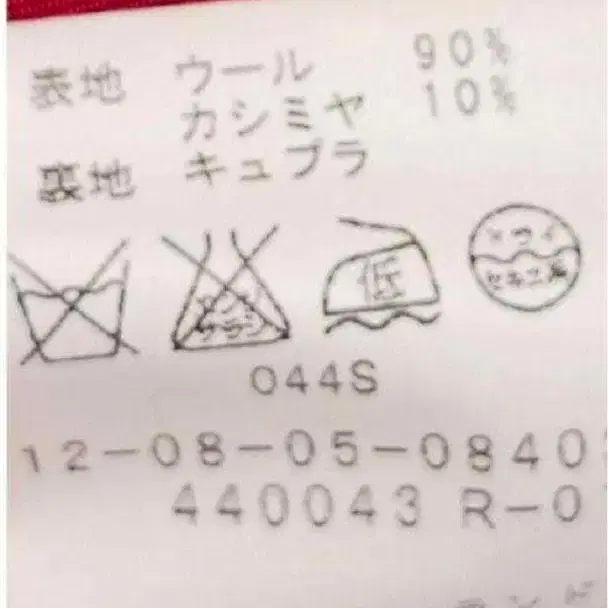 表地 ウール 90%
カシミヤ 10%
裏地 キュプラ
低
ドライ
セキユ系
エンソ
サラシ
044S
12-08-05-0840
440043 R-0